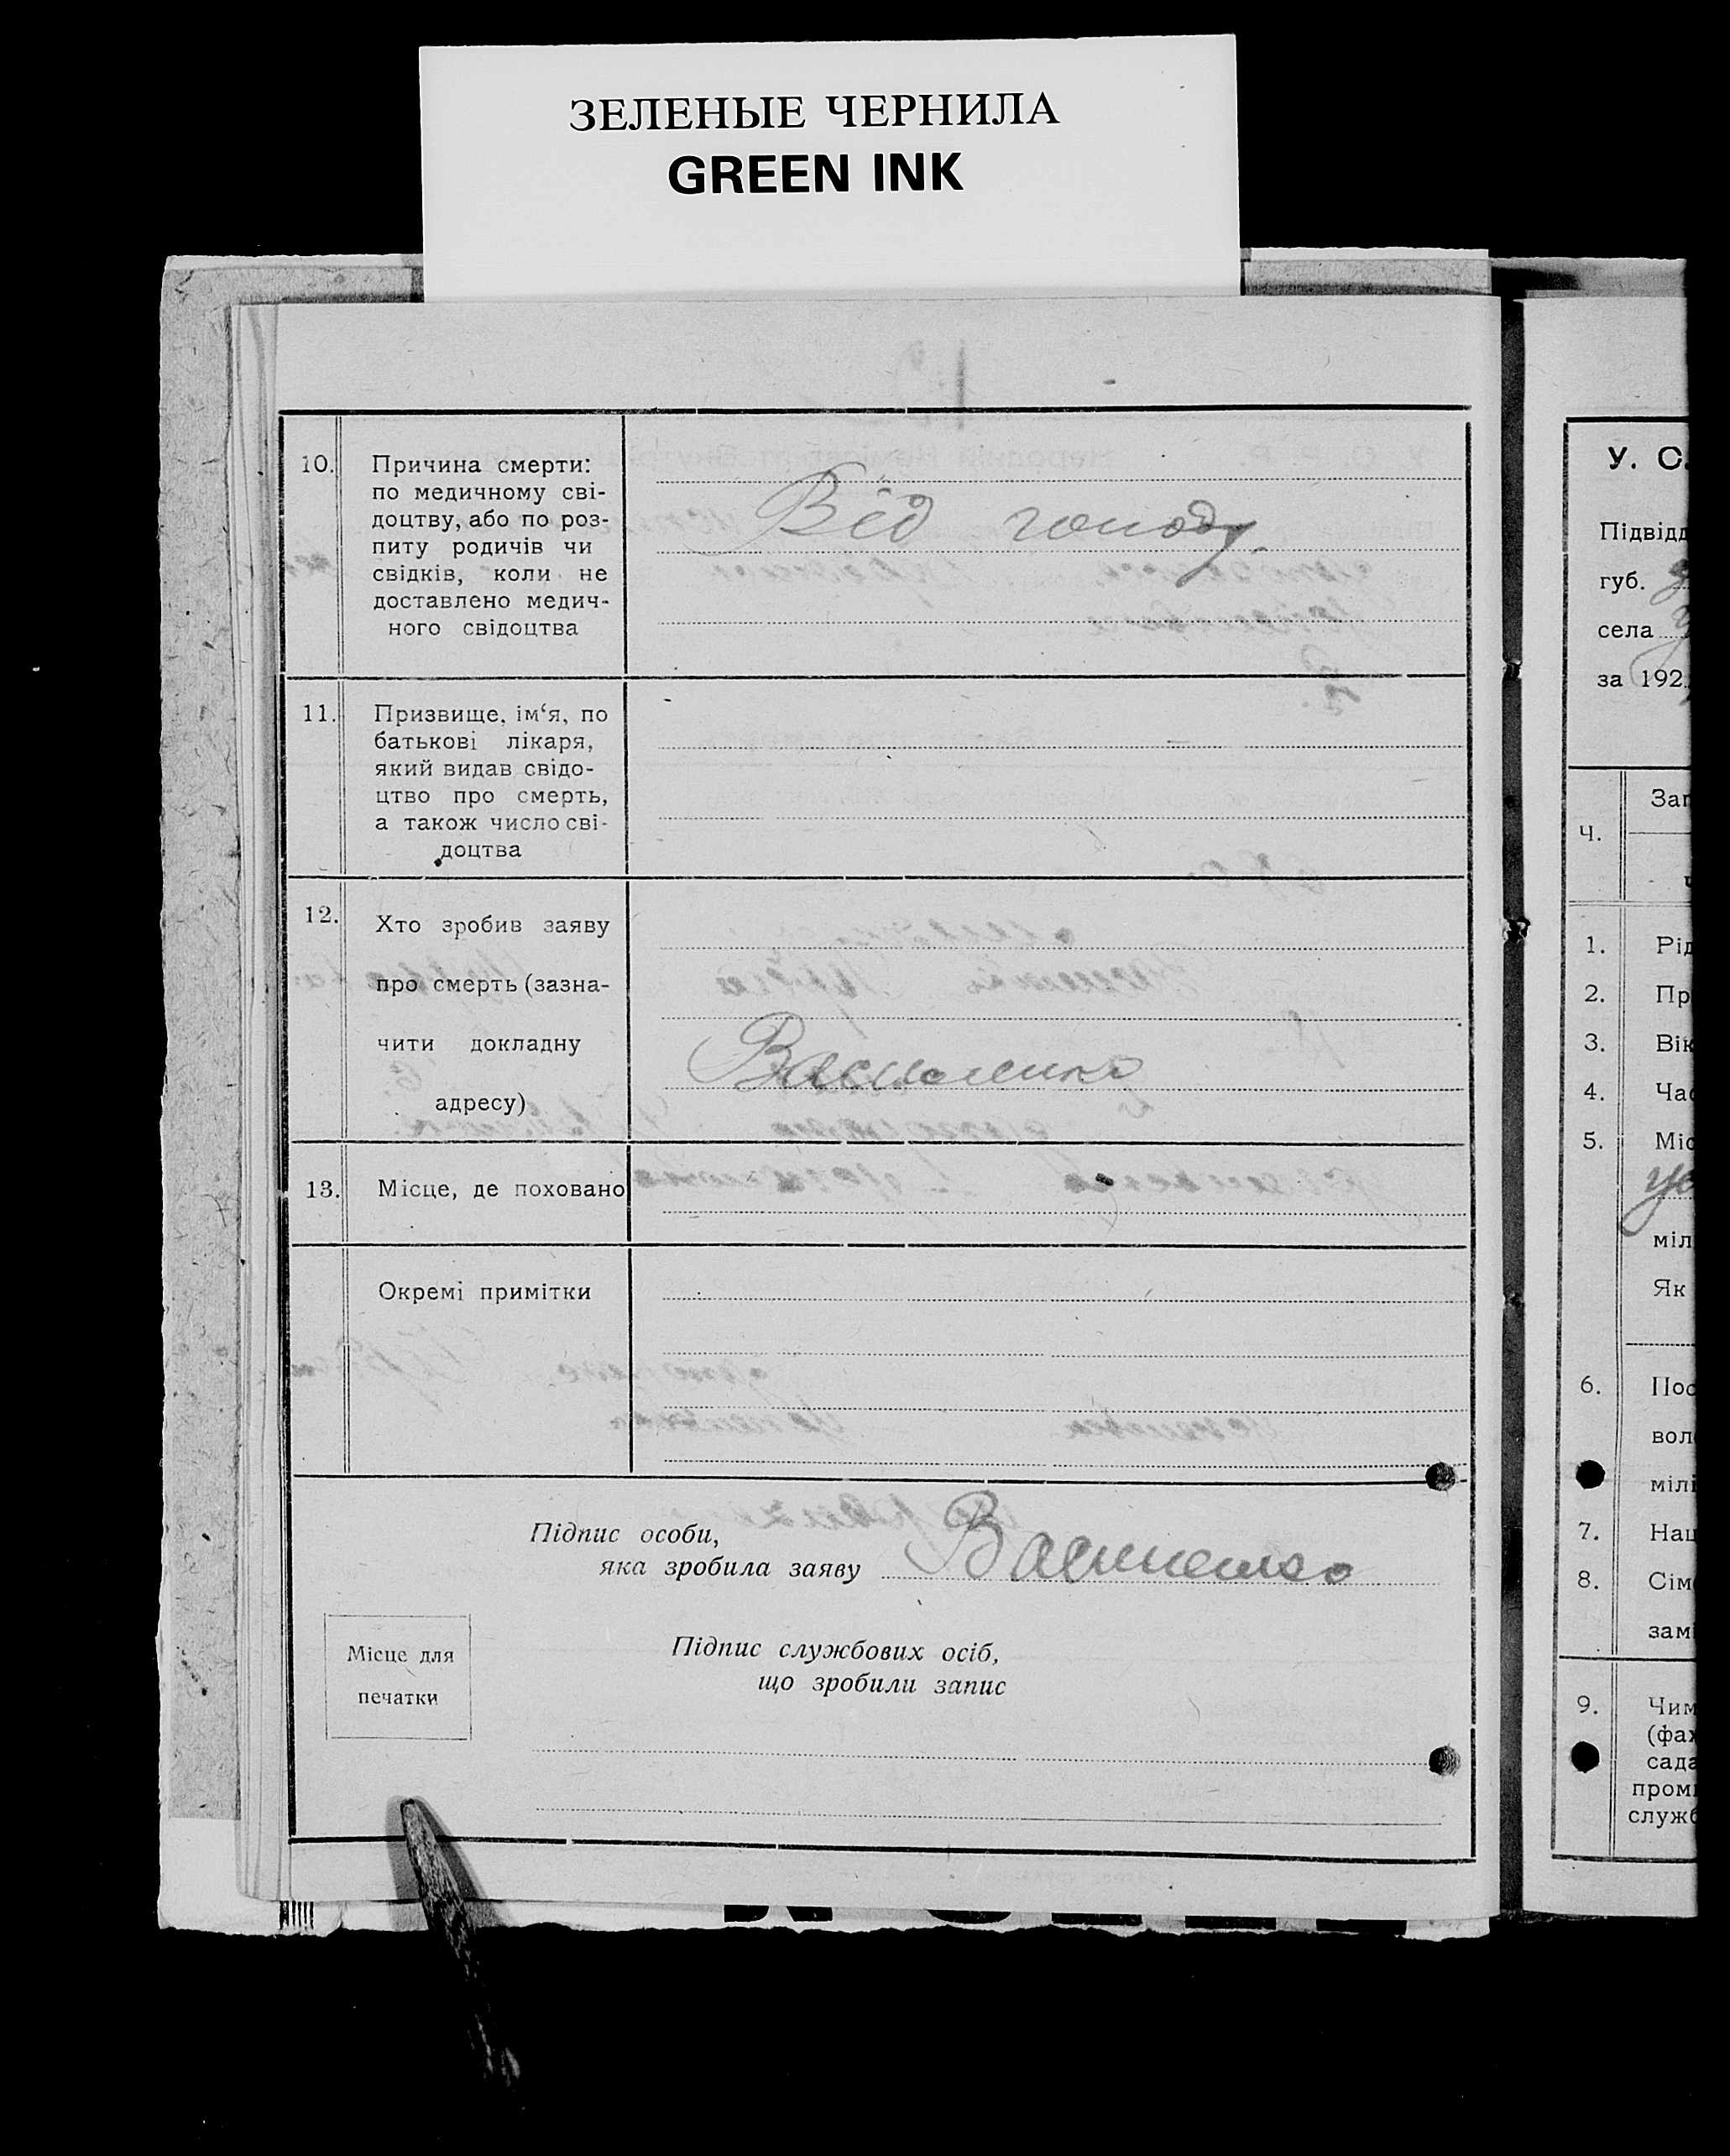 ЗЕЛЕНЫЕ ЧЕРНИЛА
GREEN INK
10. Причина смерти:
по медичному сві-
доцтву, або по роз-
питу родичів чи
свідків, коли не
доставлено медич-
ного свідоцтва
Від голоду.
11. Призвище, ім‘я, по
батькові лікаря,
який видав свідо-
цтво про смерть,
а також число сві-
доцтва
—
12. Хто зробив заяву
про смерть (зазна-
чити докладну
адресу)
Василенко
13. Місце, де поховано
Окремі примітки
Підпис особи,
яка зробила заяву Василенко
Місце для
печатки
Підпис службових осіб,
що зробили запис
У. С.
Підвідд
губ.
села
за 192
Зап
Ч.
1. Рід
2. Пр
3. Вік
4. Час
5. Міс
міл
Як
6. Пос
вол
мілі
7. Нац
8. Сім
замі
9. Чим
(фах
сада
проми
служб